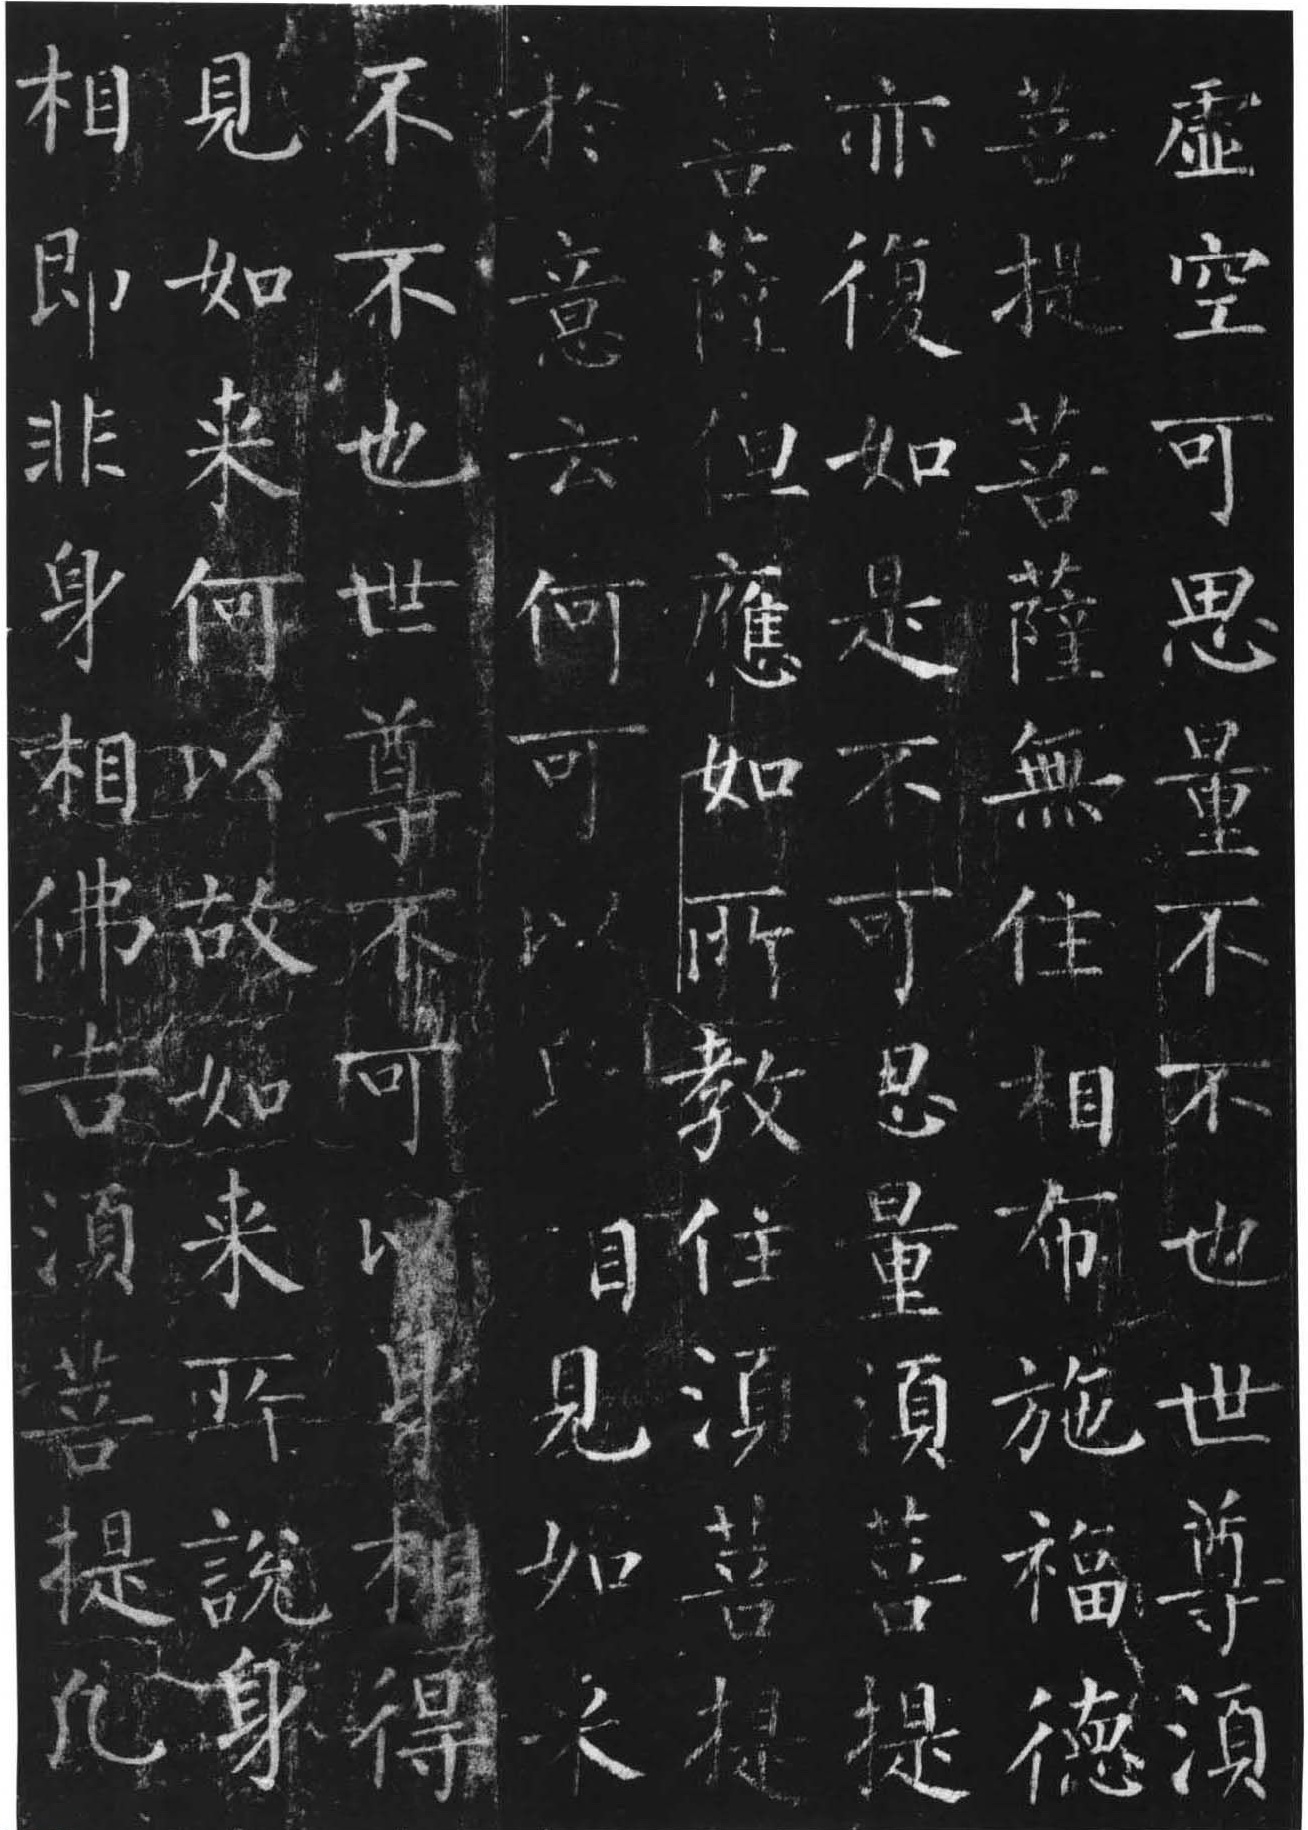 虛空可思量不不也世尊湏
菩提菩薩無住相布施福德
亦復如是不可思量湏菩提
菩薩但應如所教住湏菩提
於意云何可以見如来
不不也世尊不可以身相得
見如来何以故如来所說身
相即非身相佛告湏菩提凡